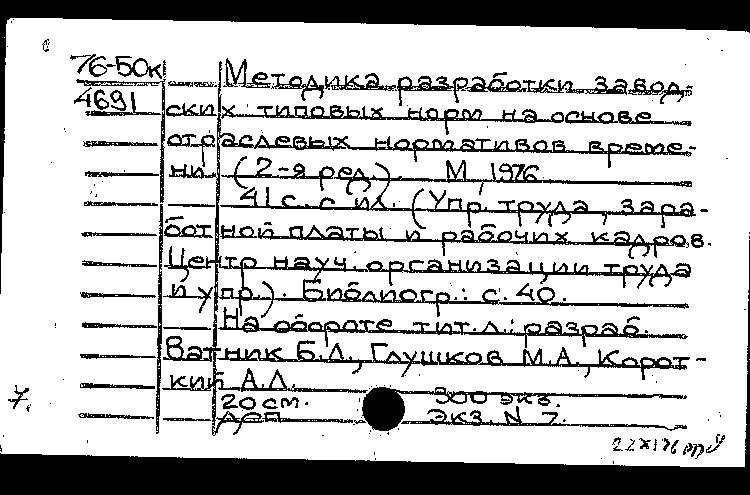 76-50к
4691
Методика разработки завод-
ских типовых норм на основе
отраслевых нормативов време-
ни. (2-я ред.). М, 1976.
41 с. с ил. (Упр. труда, зара-
ботной платы и рабочих кадров.
Центр науч. организации труда
и упр.). Библиогр.: с. 40.
На обороте тит. л.: разраб.
Ватник Б.Л., Глушков М.А., Корот-
кий А.Л.
20 см. 300 экз.
ДСП экз. N 7.
7.